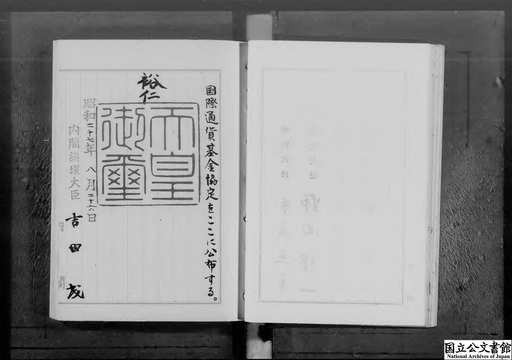 国際通貨基金協定をここに公布する。
裕仁
天皇
御璽
昭和二十七年 八月二十六日
内閣総理大臣 吉田茂
国立公文書館
National Archives of Japan